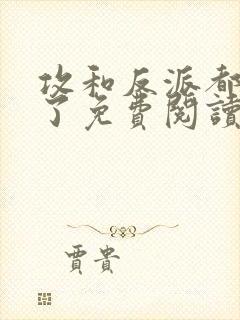 攻和反派都
了免費閱讀
賈貴